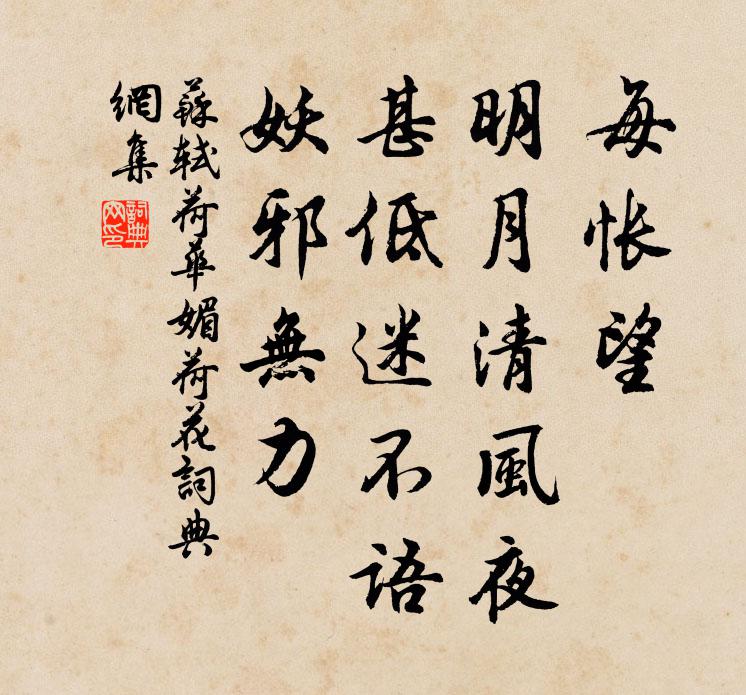 每悵望
明月清風夜
甚低迷不語
妖邪無力
蘇軾荷華媚荷花詞典
網集
詞典
网印